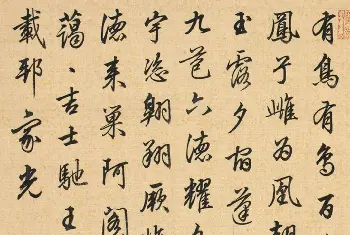 有鳥有鳥百
鳳兮雌為凰朝
玉露夕宿蓬
九苞六德耀
宇恣翱翔厥
德來巢阿閣
藹〻吉士馳王
載邦家光